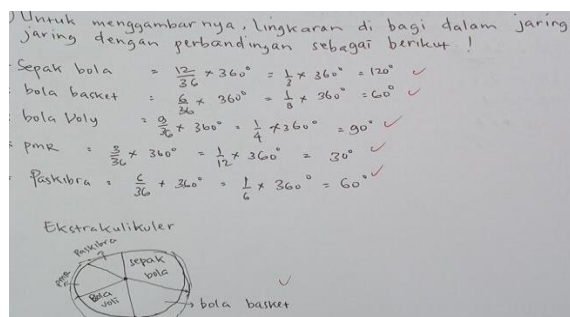 ) Untuk menggambarnya, lingkaran di bagi dalam jaring
jaring dengan perbandingan sebagai berikut !
Sepak bola = 12/36 × 360° = 1/3 × 360° = 120°
bola basket = 6/36 × 360° = 1/8 × 360° = 60°
bola Voly = 9/36 × 360° = 1/4 × 360° = 90°
PMR = 3/36 × 360° = 1/12 × 360° = 30°
Paskibra = 6/36 × 360° = 1/6 × 360° = 60°
Ekstrakulikuler
Paskibra
sepak
bola
PMR
Bola
voli
bola basket